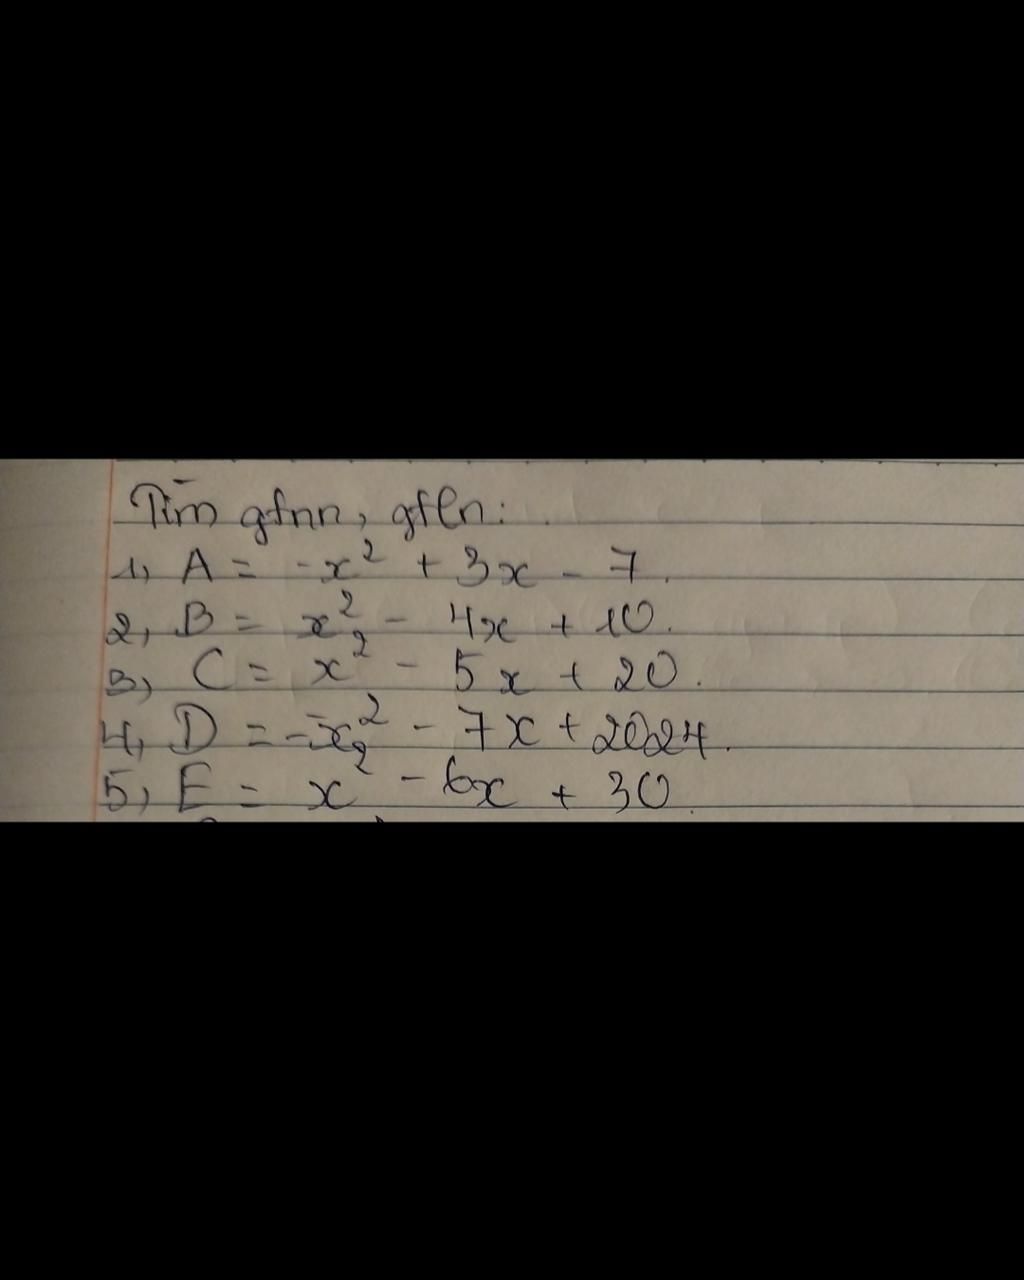 Tìm gtnn, gtln:
1, A = -x² + 3x - 7.
2, B = x² - 4x + 10.
3, C = x² - 5x + 20.
4, D = -x² - 7x + 2024.
5, E = x² - 6x + 30.